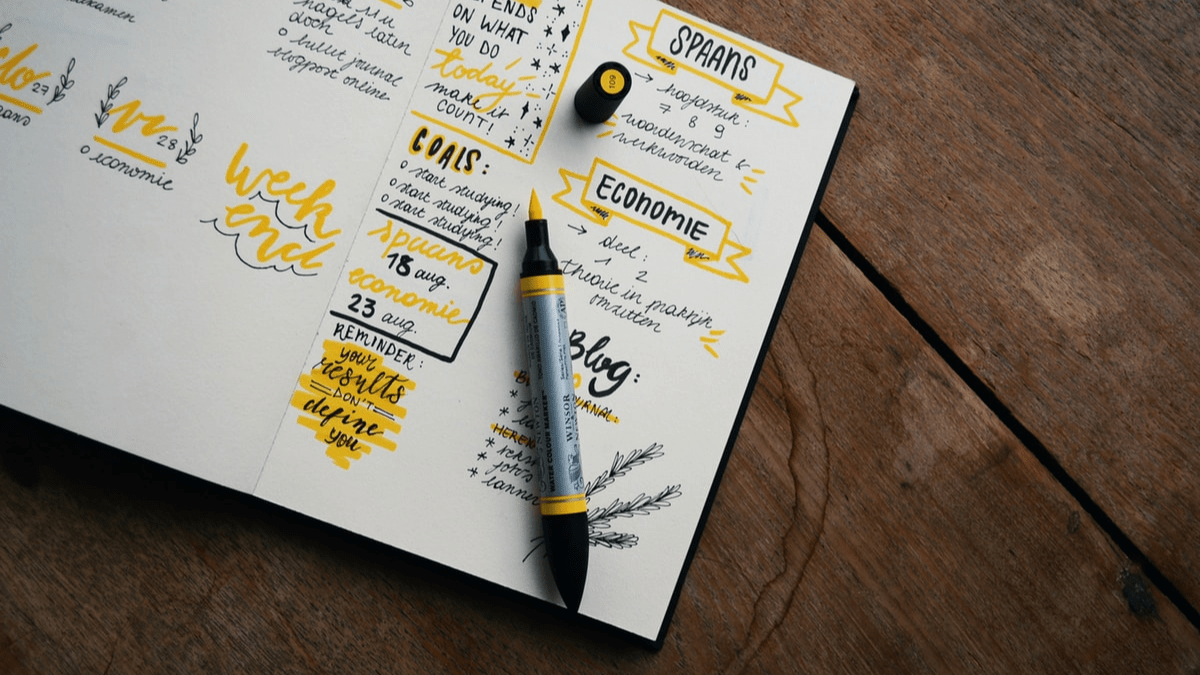 examen
do 27
vr 28
o economie
week
end
nagels laten
doch
o bullet journal
blogpost online
ON WHAT
YOU DO
today
make it
COUNT!
GOALS:
o start studying!
o start studying!
o start studying!
spaans
18 aug.
economie
23 aug.
REMINDER:
your
results
DON'T
define
you
109
SPAANS
→ hoofdstuk:
7 8 9
woordenschat &
werkwoorden
ECONOMIE
→ deel:
1 2
theorie in praktijk
omzetten
Blog:
WATER COLOUR MARKER
WINSOR